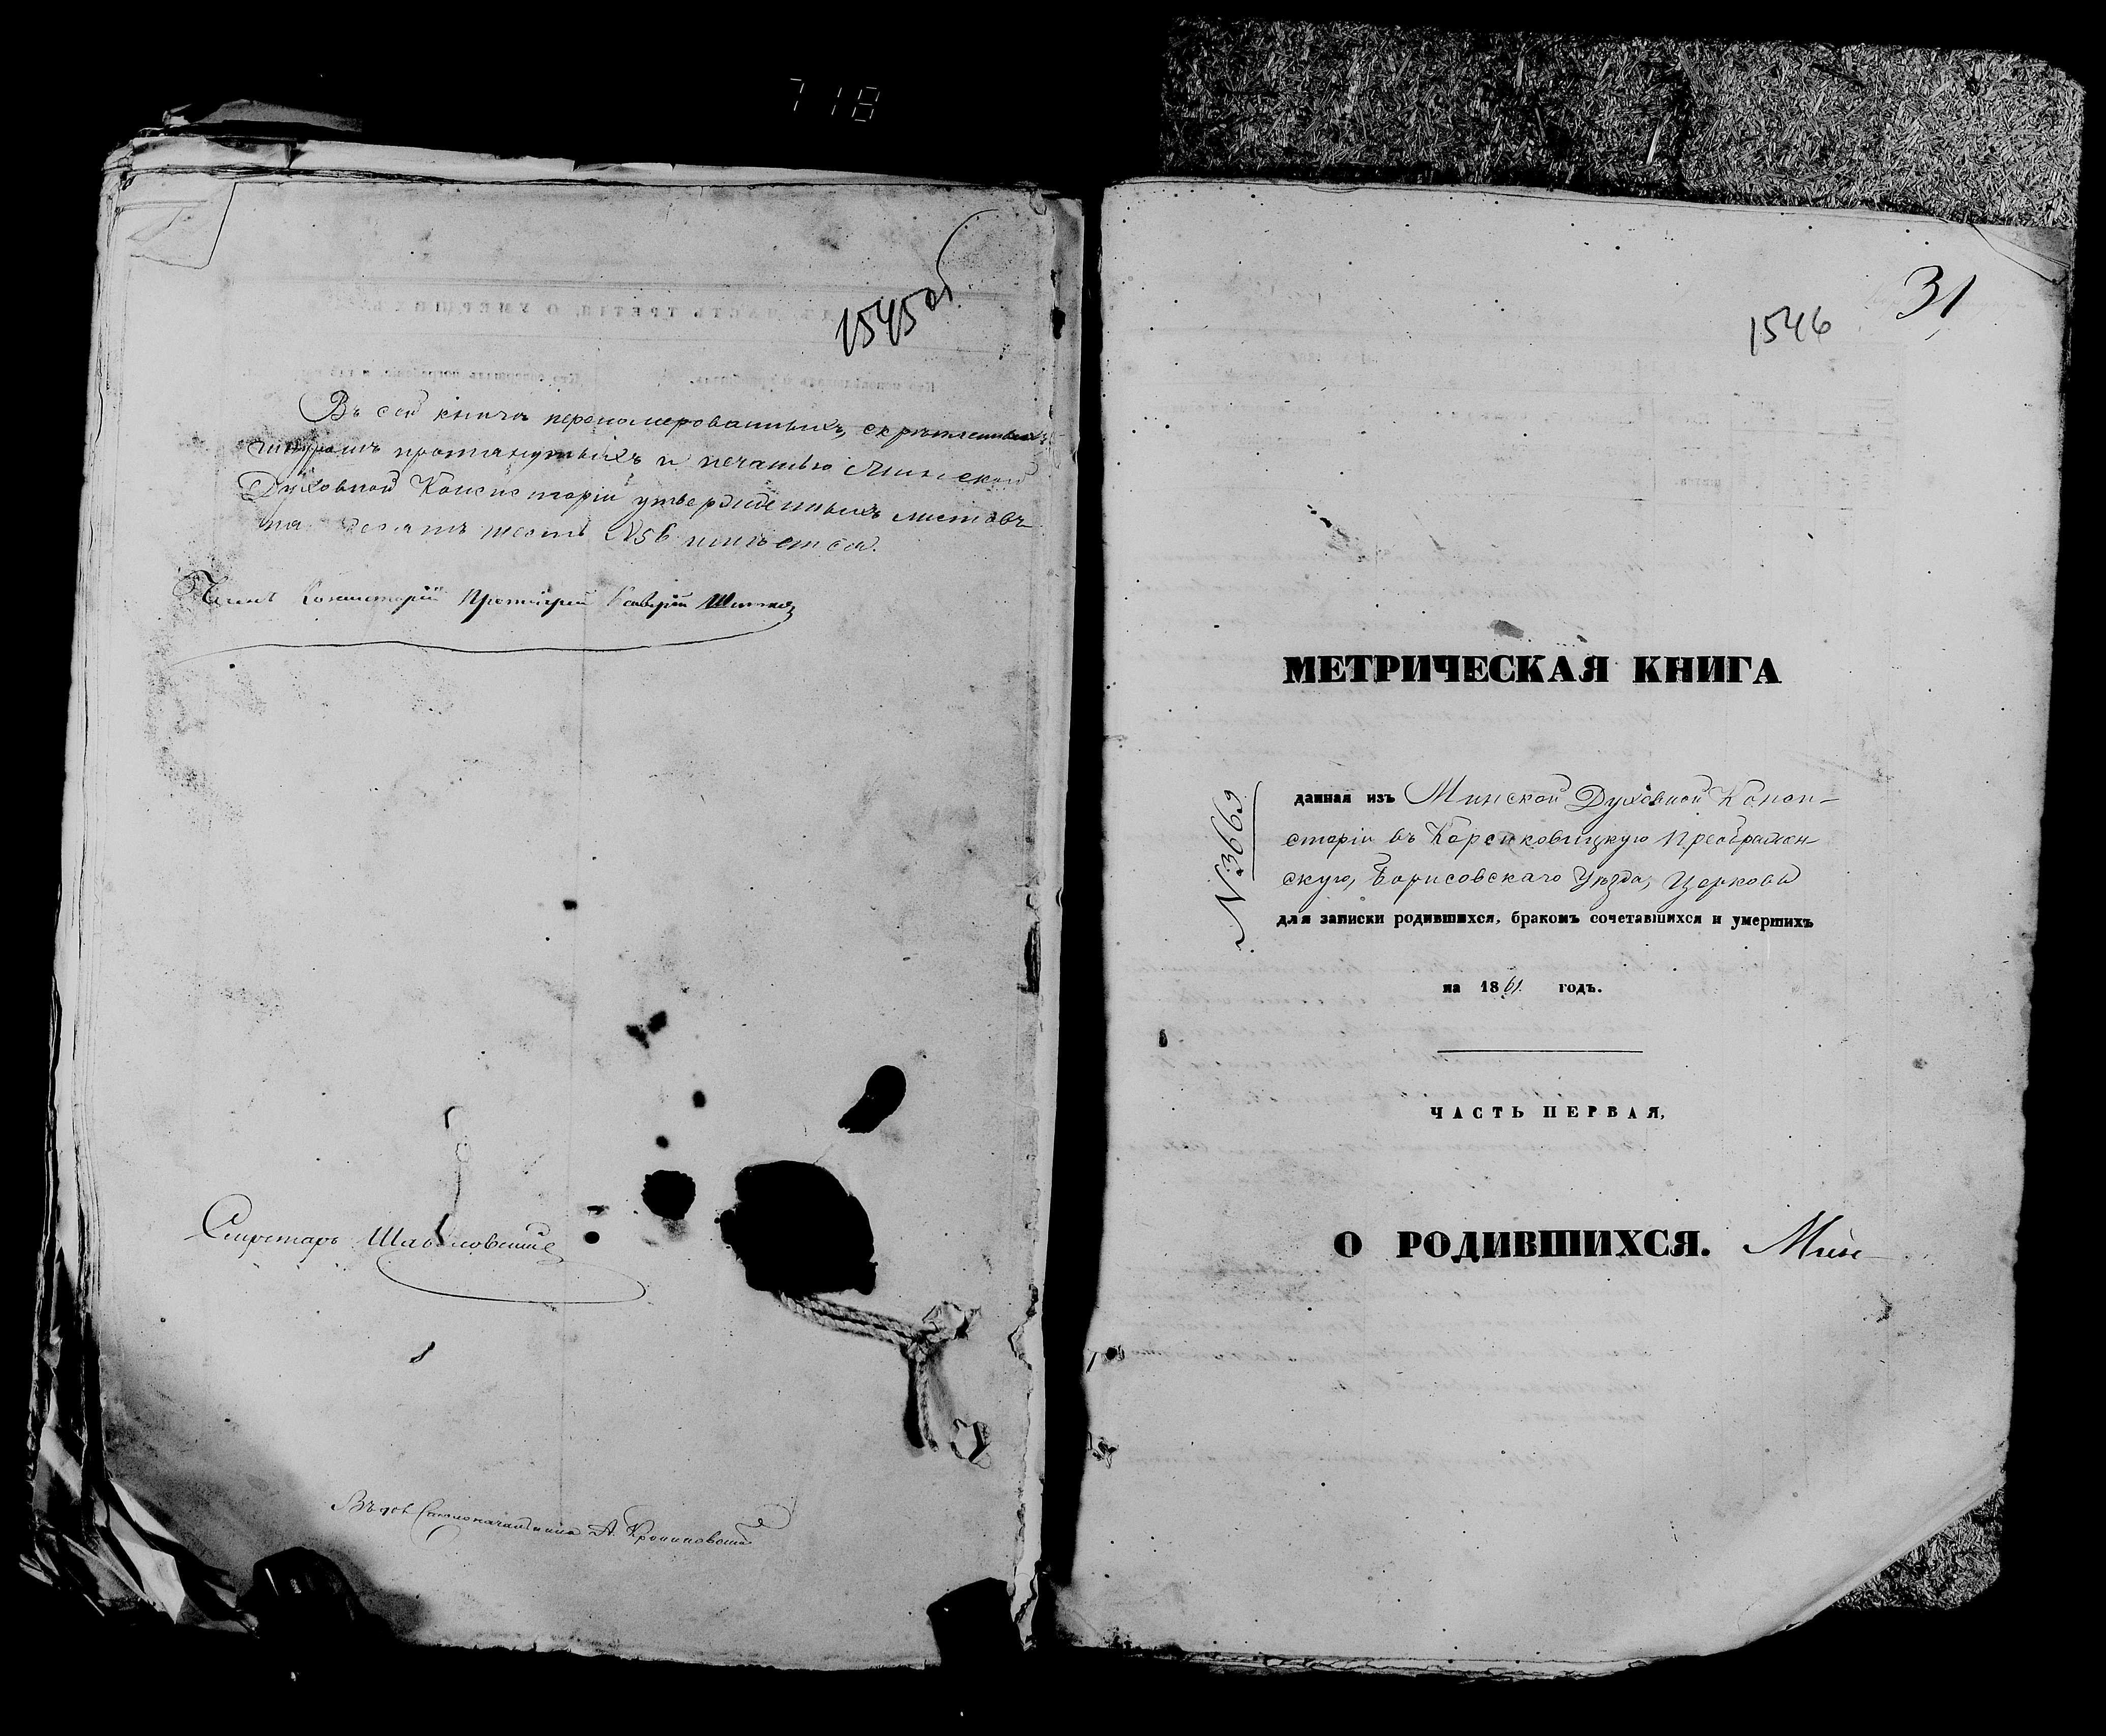 718
1545об
Въ сей книгѣ перономерованныхъ, скрѣпленныхъ
шнуромъ протянутыхъ и печатью Минской
Духовной Консисторіи утвержденныхъ листовъ
пятьдесятъ шесть №56 имѣется.
Членъ Консисторіи Протоіерей
Секретарь
Столоначальника А.
1546
31
МЕТРИЧЕСКАЯ КНИГА
№3669
данная изъ Минской Духовной Конси-
сторіи въ Корсиковицкую Преображен-
скую, Борисовскаго Уѣзда, Церковь
для записки родившихся, бракомъ сочетавшихся и умершихъ
на 1861 годъ.
ЧАСТЬ ПЕРВАЯ,
О РОДИВШИХСЯ. Мин-